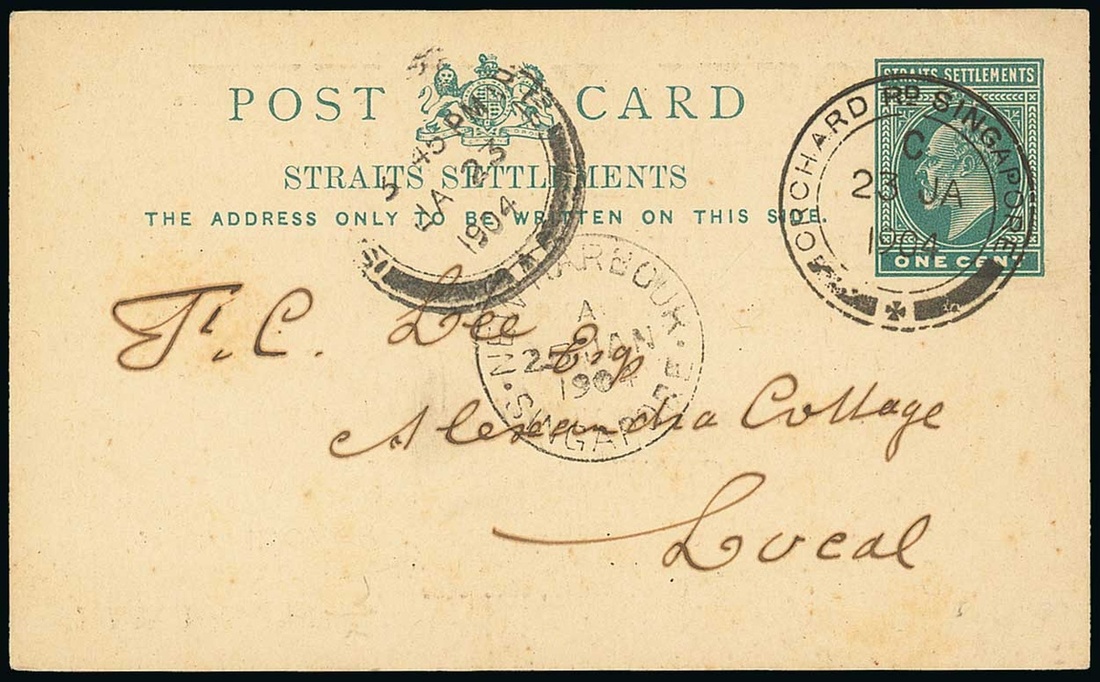 POST CARD
STRAITS SETTLEMENTS
THE ADDRESS ONLY TO BE WRITTEN ON THIS SIDE.
STRAITS SETTLEMENTS
ONE CENT
ORCHARD RD SINGAPORE
C
23 JA
1904
45 PM
JA 23
1904
NEW HARBOUR
A
JAN
1904
SINGAPORE
T. C. Lee Esq
Alexandra Cottage
Local